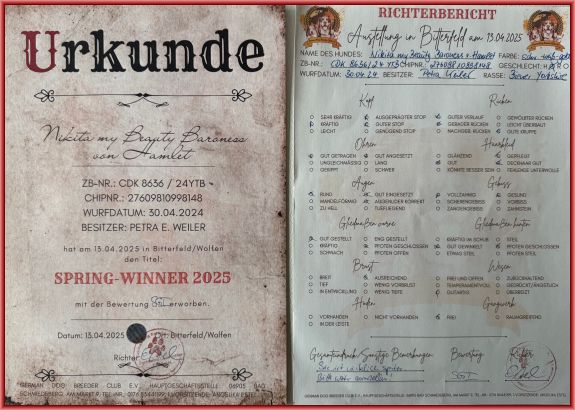 Urkunde
Nikita my Beauty Baroness
von Hamlet
ZB-NR.: CDK 8636 / 24YTB
CHIPNR.: 27609810998148
WURFDATUM: 30.04.2024
BESITZER: PETRA E. WEILER
hat am 13.04.2025 in Bitterfeld/Wolfen
den Titel:
SPRING-WINNER 2025
mit der Bewertung SG1 erworben.
Datum: 13.04.2025 Ort: Bitterfeld/Wolfen
Richter:
GERMAN DOG BREEDER CLUB E.V., HAUPTGESCHÄFTSSTELLE: 06905 BAD
SCHMIEDEBERG AM MARKT 9,
RICHTERBERICHT
Ausstellung in Bitterfeld am 13.04.2025
NAME DES HUNDES: Nikita my Beauty Baroness v. Hamlet FARBE:
ZB-NR.: CDK 8636/24 YTB CHIPNR.: GESCHLECHT:
WURFDATUM: 30.04.24 BESITZER: Petra Weiler RASSE: Biewer Yorkshire
Kopf Rücken
SEHR KRÄFTIG AUSGEPRÄGTER STOP GUTER VERLAUF GEWÖLBTER RÜCKEN
KRÄFTIG GUTER STOP GERADER RÜCKEN LEICHT ÜBERBAUT
LEICHT GENÜGEND STOP NACHGIEB. RÜCKEN GUTE KRUPPE
Ohren Haarkleid
GUT GETRAGEN GUT ANGESETZT GLÄNZEND GEPFLEGT
UNGLEICHMÄSSIG LANG GUT DECKHAAR GUT
GEKIPPT SCHWER KÖNNTE BESSER SEIN FEHLENDE UNTERWOLLE
Augen Gebiss
RUND GUT EINGESETZT VOLLZAHNIG GESUND
MANDELFÖRMIG AUGENLIDER KORREKT SCHERENGEBISS VORBISS
ZU HELL TIEFLIEGEND ZANGENGEBISS ZAHNSTEIN
Gliedmaßen vorne Gliedmaßen hinten
GUT GESTELLT ENG GESTELLT KRÄFTIG IM SCHUB STEIL
KRÄFTIG PFOTEN GESCHLOSSEN GUT GEWINKELT PFOTEN GESCHLOSSEN
SCHWACH PFOTEN OFFEN ETWAS STEIL PFOTEN OFFEN
Brust Wesen
BREIT AUSREICHEND FREI UND OFFEN ZURÜCKHALTEND
TIEF WENIG VORBRUST TEMPERAMENTVOLL GEDRÜCKT/ÄNGSTLICH
IN ENTWICKLUNG WENIG TIEFE GUTARTIG ÜBERREIZT
Hoden Gangwerk
VORHANDEN NICHT VORHANDEN FREI RAUMGREIFEND
IN DER LEISTE
Gesamteindruck/Sonstige Bemerkungen Bewertung Richter
SG1